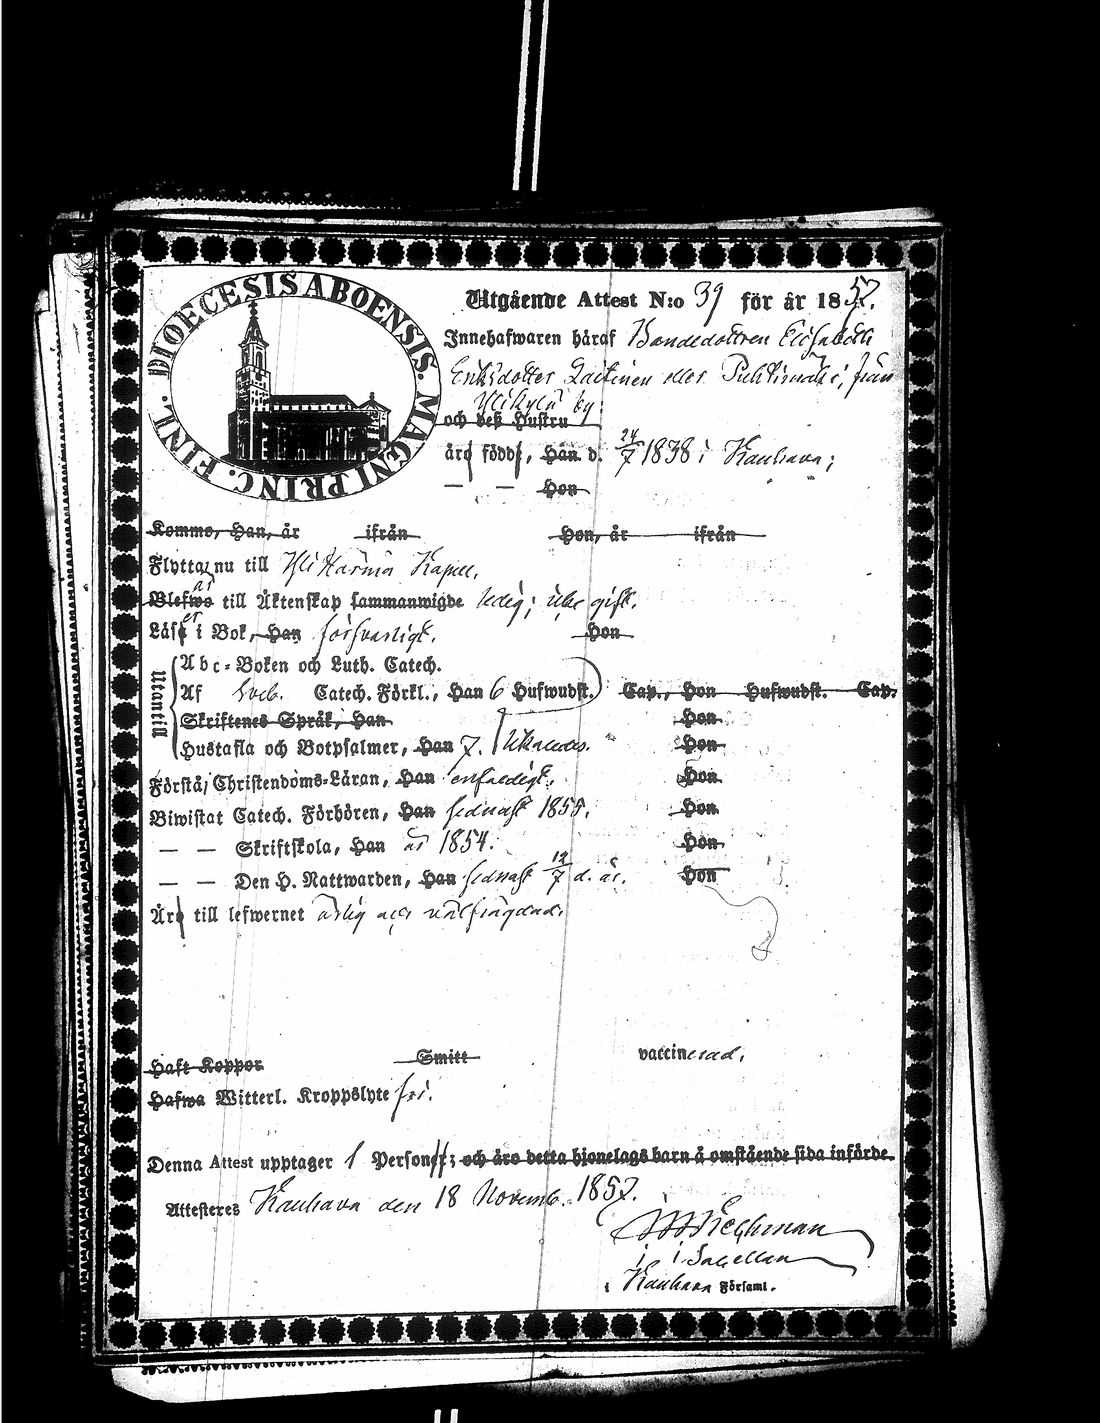 DIOECESIS ABOENSIS. MAGNI PRINC. FINL.
Utgående Attest N:o 39 för år 1857.
Innehafwaren häraf Bondedottren Elisabeth
Eriksdotter Laitinen eller Puhtimäki, från
Ylikylä by.
och deß Hustru
äro födde, Han d. 24/7 1838 i Kauhava;
— — Hon
Kommo, Han, år ifrån Hon, år ifrån
Flytta nu till Yli Härmä Kapell.
är
Blefwo till Äktenskap sammanwigde ledig;
er
Läsa i Bok, Han försvarligt. Hon
Utantill
Abc-Boken och Luth. Catech.
Af Sveb. Catech. Förkl., Han 6 Hufwudst. Cap., Hon Hufwudst. Cap.
Skriftenes Språk, Han Hon
Hustafla och Botpsalmer, Han 7. Hon
Förstå Christendoms-Läran, Han enfaldigt. Hon
Biwistat Catech. Förhören, Han sednast 1855. Hon
— — Skriftskola, Han år 1854. Hon
— — Den H. Nattwarden, Han sednast 12/7 d. år. Hon
Äro till lefwernet ärlig och välfrägdad.
Haft Koppor Smitt vaccinerad.
Hafwa Witterl. Kroppslyte fri.
Denna Attest upptager 1 Personer; och äro detta hjonelags barn å omstående sida införde.
Attesteres Kauhava den 18 Novemb. 1857.
Kauhava Församl.